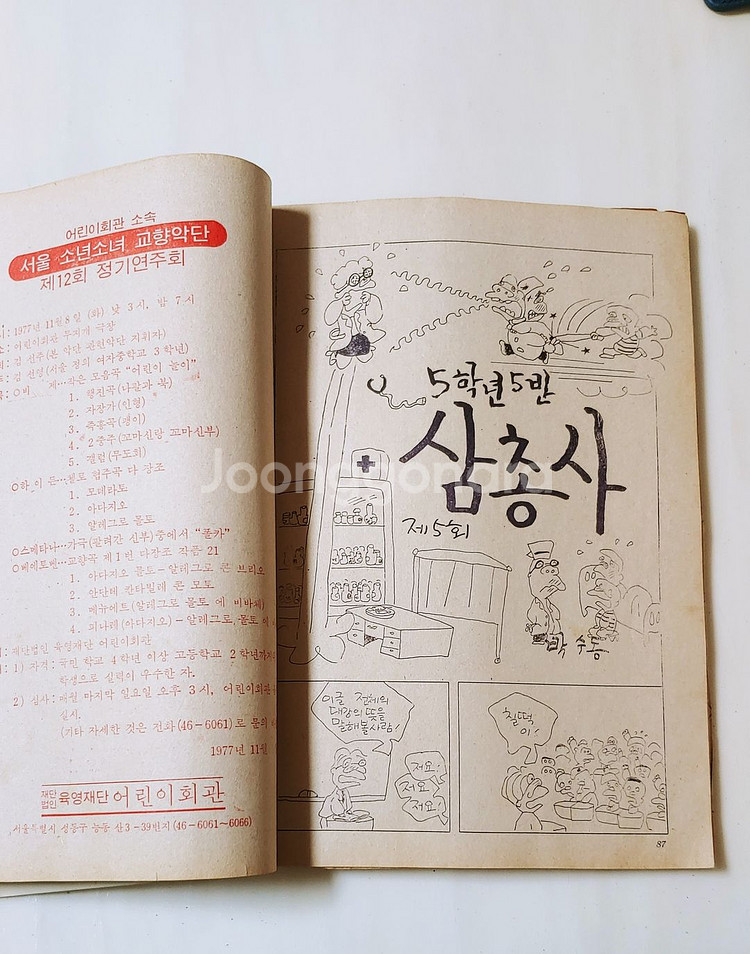 어린이회관 소속
서울 소년소녀 교향악단
제12회 정기연주회
1977년 11월 8일 (화) 낮 3시, 밤 7시
어린이회관 무지개 극장
김 선주(본 악단 전임악단 지휘자)
(서울 정의 여자중학교 3학년)
작은 모음곡 "어린이 놀이"
1. 행진곡(나팔과 북)
2. 자장가(인형)
3. 즉흥곡(팽이)
4. 2중주(꼬마신랑 꼬마신부)
5. 갤럽(무도회)
○하이든…첼로 협주곡 다 장조
1. 모데라토
2. 아다지오
3. 알레그로 몰토
○스메타나…가극(팔려간 신부)중에서 "폴카"
○베에토벤…교향곡 제1번 다장조 작품 21
1. 아다지오 몰토-알레그로 콘 브리오
2. 안단테 칸타빌레 콘 모토
3. 메뉴에트(알레그로 몰토 에 비바체)
4. 피나레(아다지오)-알레그로 몰토
재단법인 육영재단 어린이회관
1) 자격: 국민 학교 4학년 이상 고등학교 2학년까지
학생으로 실력이 우수한 자.
2) 심사: 매월 마지막 일요일 오후 3시, 어린이회관
실시.
(기타 자세한 것은 전화(46-6061)로 문의
1977년 11월
재단법인 육영재단 어린이회관
서울특별시 성동구 능동 산3-39번지(46-6061~6066)
5학년5반
삼총사
제5회
박수동
이글 전체의
대강의 뜻을
말해볼사람!
저요
저요
저요!
칠떡
이!
87
Joonggonara